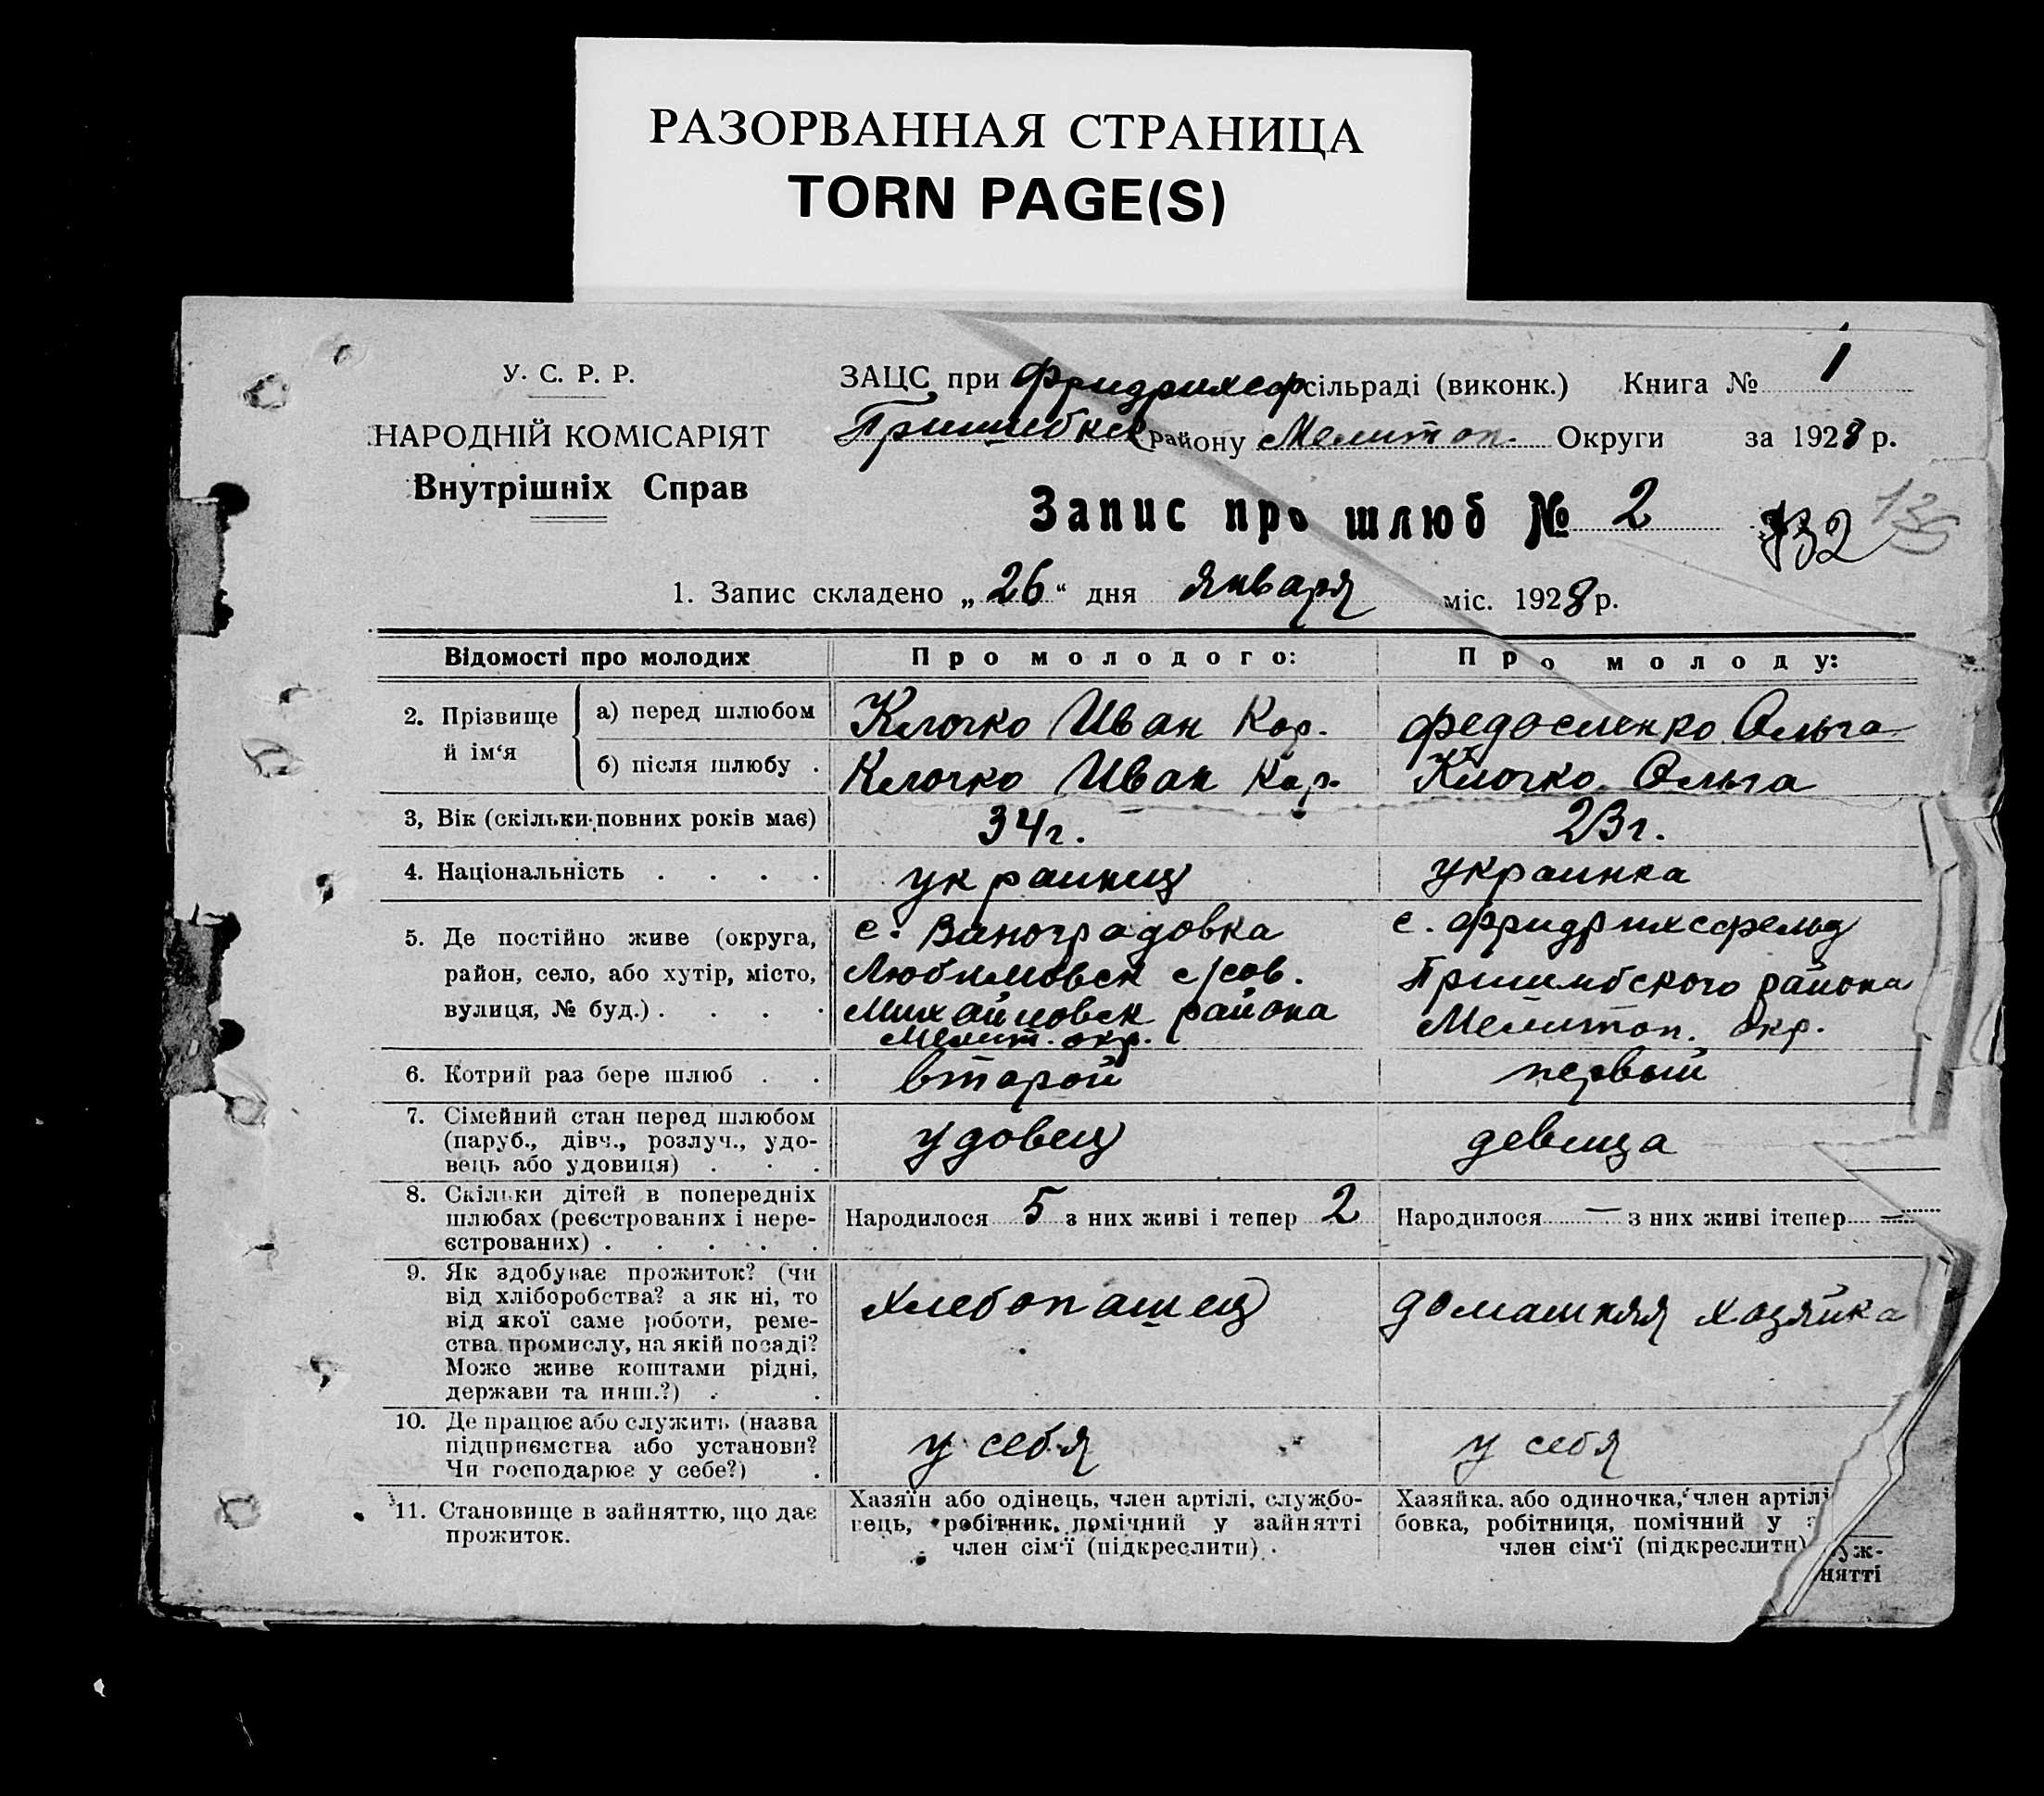 РАЗОРВАННАЯ СТРАНИЦА
TORN PAGE(S)
У. С. Р. Р.
НАРОДНІЙ КОМІСАРІЯТ
Внутрішніх Справ
ЗАЦС при Фридрихсф сільраді (виконк.) Книга № 1
Пришибск району Мелитоп. Округи за 1928 р.
Запис про шлюб № 2
132 135
1. Запис складено „26“ дня января міс. 1928 р.
Відомості про молодих Про молодого: Про молоду:
2. Прізвище й ім‘я
а) перед шлюбом Клочко Иван Кор. Федосленко Ольга
б) після шлюбу . Клочко Иван Кор. Клочко Ольга
3, Вік (скільки повних років має) 34 г. 23 г.
4. Національність . . . . украинец украинка
5. Де постійно живе (округа,
район, село, або хутір, місто,
вулиця, № буд.) . . . .
с. Виноградовка
Любимовск с/сов.
Михайловск района
Мелит. окр.
с. Фридрихсфельд
Пришибского района
Мелитоп. окр.
6. Котрий раз бере шлюб . . второй первый
7. Сімейний стан перед шлюбом
(паруб., дівч., розлуч., удо-
вець або удовиця) . . .
удовец девица
8. Скільки дітей в попередніх
шлюбах (реєстрованих і нере-
єстрованих) . . . . .
Народилося 5 з них живі і тепер 2 Народилося — з них живі ітепер —
9. Як здобуває прожиток? (чи
від хліборобства? а як ні, то
від якої саме роботи, реме-
ства промислу, на якій посаді?
Може живе коштами рідні,
держави та инш.?) . .
хлебопашец домашняя хозяйка
10. Де працює або служить (назва
підприємства або установи?
Чи господарює у себе?) .
у себя у себя
11. Становище в зайняттю, що дає
прожиток.
Хазяїн або одінець, член артілі, службо-
вець, робітник, помічний у зайнятті
член сім‘ї (підкреслити) .
Хазяйка, або одиночка, член артілі
бовка, робітниця, помічний у з
член сім‘ї (підкреслити)
уж-
нятті